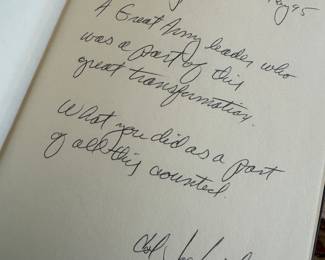 A Great Army leader who
was a part of this
great transformation.
What you did as a part
of all this counted.